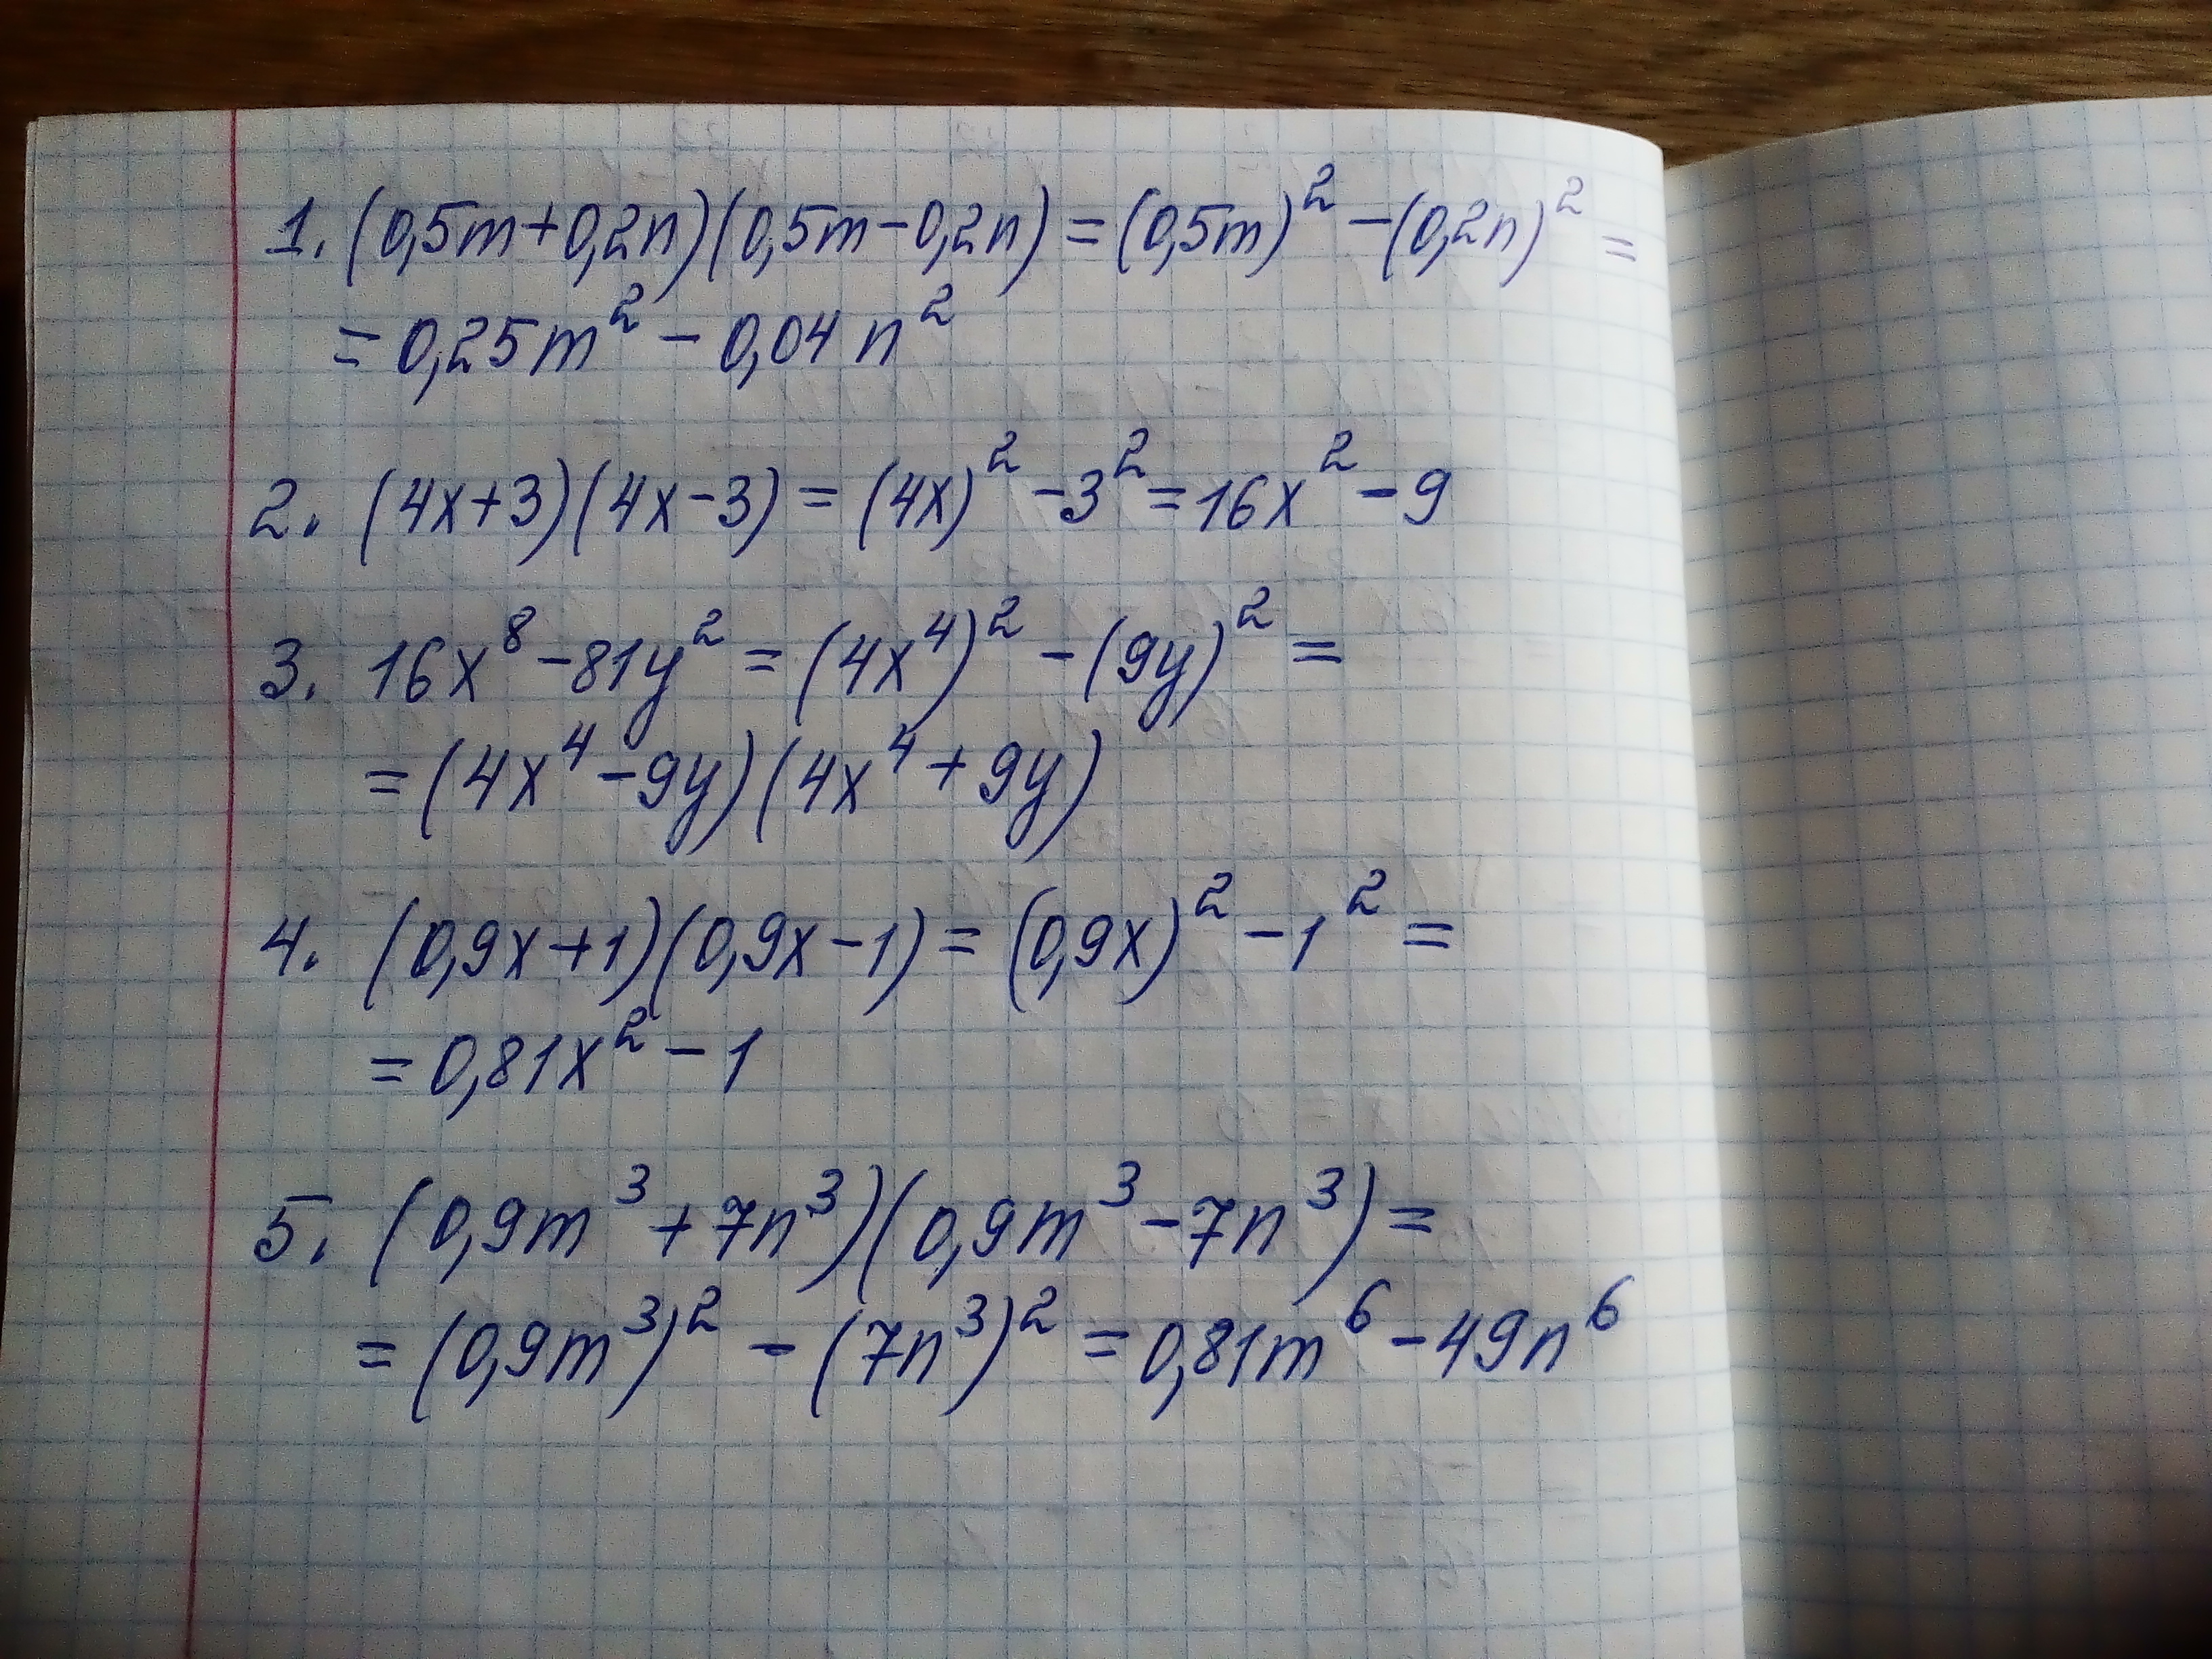 1. (0,5m+0,2n)(0,5m-0,2n)=(0,5m)²-(0,2n)²=
=0,25m²-0,04n²
2. (4x+3)(4x-3)=(4x)²-3²=16x²-9
3. 16x⁸-81y²=(4x⁴)²-(9y)²=
=(4x⁴-9y)(4x⁴+9y)
4. (0,9x+1)(0,9x-1)=(0,9x)²-1²=
=0,81x²-1
5. (0,9m³+7n³)(0,9m³-7n³)=
=(0,9m³)²-(7n³)²=0,81m⁶-49n⁶